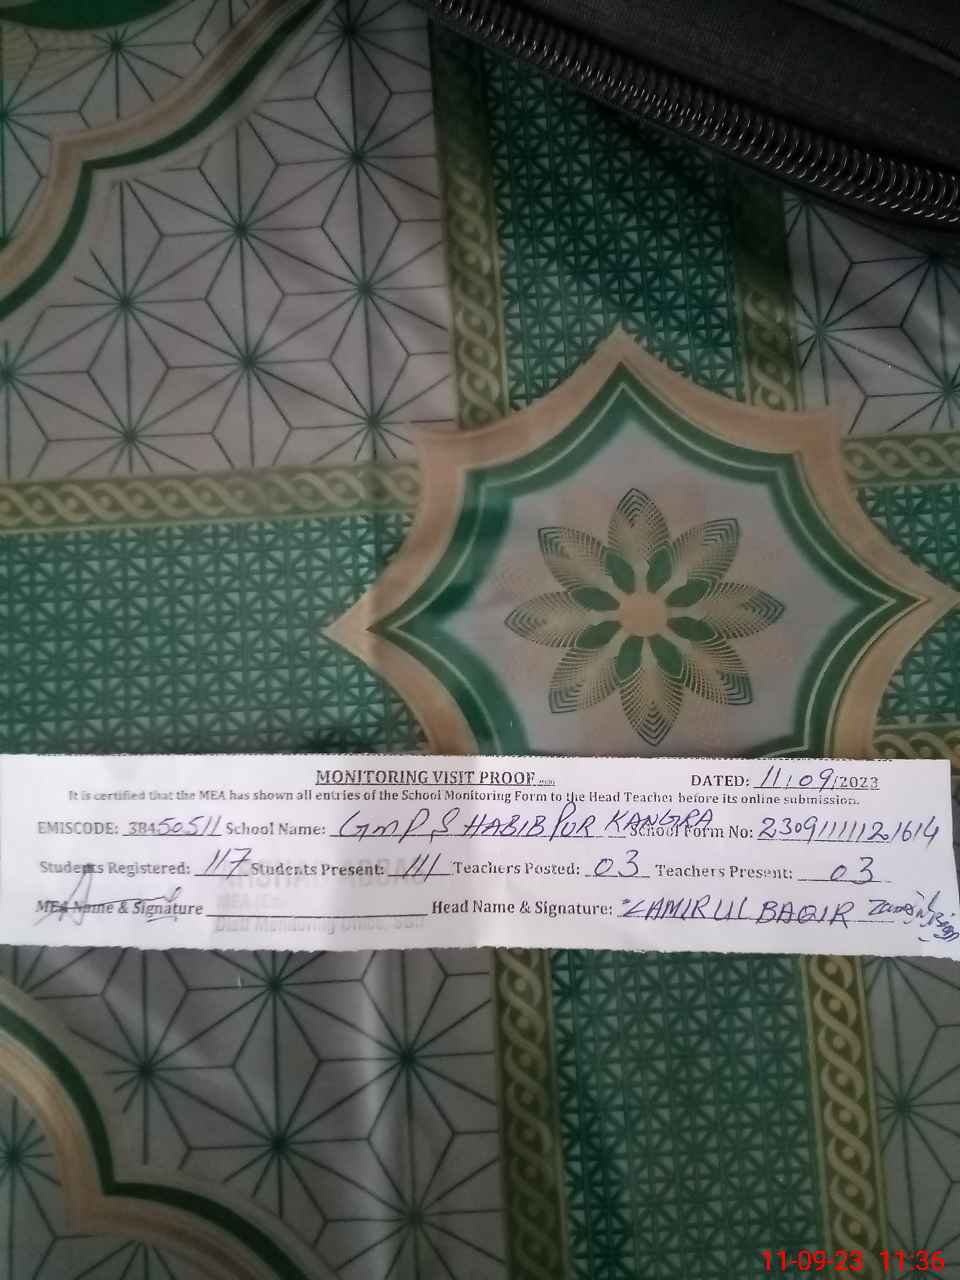 MONITORING VISIT PROOF
DATED: 11/09/2023
It is certified that the MEA has shown all entries of the School Monitoring Form to the Head Teacher before its online submission.
EMISCODE: 38450511 School Name: GMPS HABIB PUR KANGRA School Form No: 23091111121614
Students Registered: 117 Students Present: 111 Teachers Posted: 03 Teachers Present: 03
MEA Name & Signature Head Name & Signature: ZAMIR UL BAQIR
11-09-23 11:36